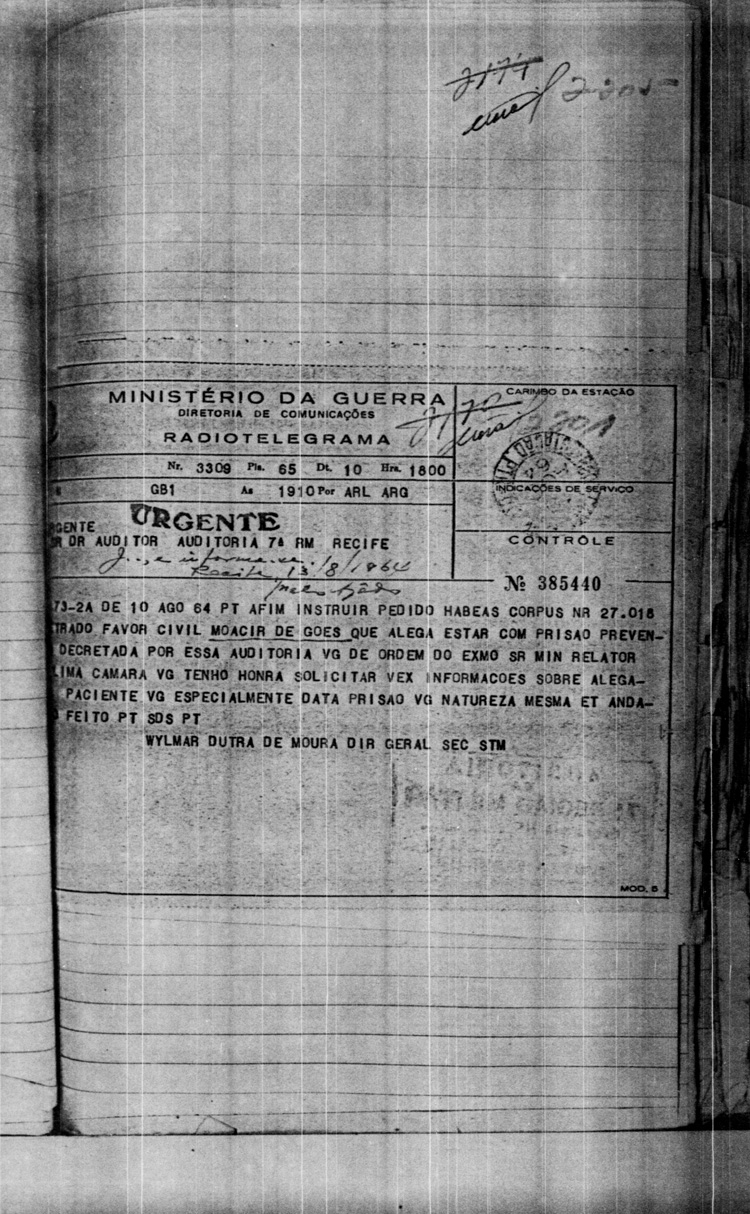 2205
MINISTÉRIO DA GUERRA
DIRETORIA DE COMUNICAÇÕES
RADIOTELEGRAMA
CARIMBO DA ESTAÇÃO
Nr. 3309 Pls. 65 Dt. 10 Hrs. 1800
GB1 As 1910 Por ARL ARG
INDICAÇÕES DE SERVIÇO
URGENTE
RGENTE
DR AUDITOR AUDITORIA 7ª RM RECIFE
CONTRÔLE
J., e informe-se.
Recife, 13/8/1964
Nº 385440
73-2A DE 10 AGO 64 PT AFIM INSTRUIR PEDIDO HABEAS CORPUS NR 27.018
TRADO FAVOR CIVIL MOACIR DE GOES QUE ALEGA ESTAR COM PRISAO PREVEN-
DECRETADA POR ESSA AUDITORIA VG DE ORDEM DO EXMO SR MIN RELATOR
LIMA CAMARA VG TENHO HONRA SOLICITAR VEX INFORMACOES SOBRE ALEGA-
PACIENTE VG ESPECIALMENTE DATA PRISAO VG NATUREZA MESMA ET ANDA-
FEITO PT SDS PT
WYLMAR DUTRA DE MOURA DIR GERAL SEC STM
MOD. 5